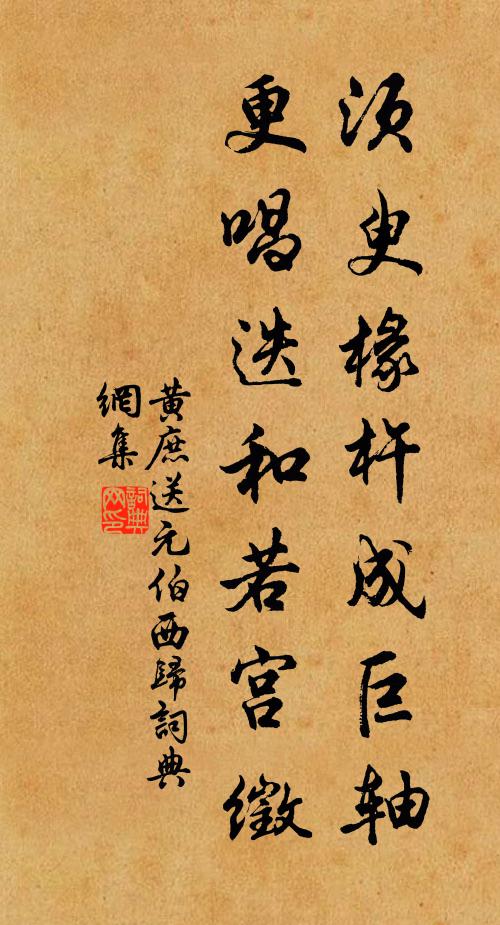 須臾椽杵成巨軸
更唱迭和若宮徵
黃庶送元伯西歸詞典
網集
詞典
网印